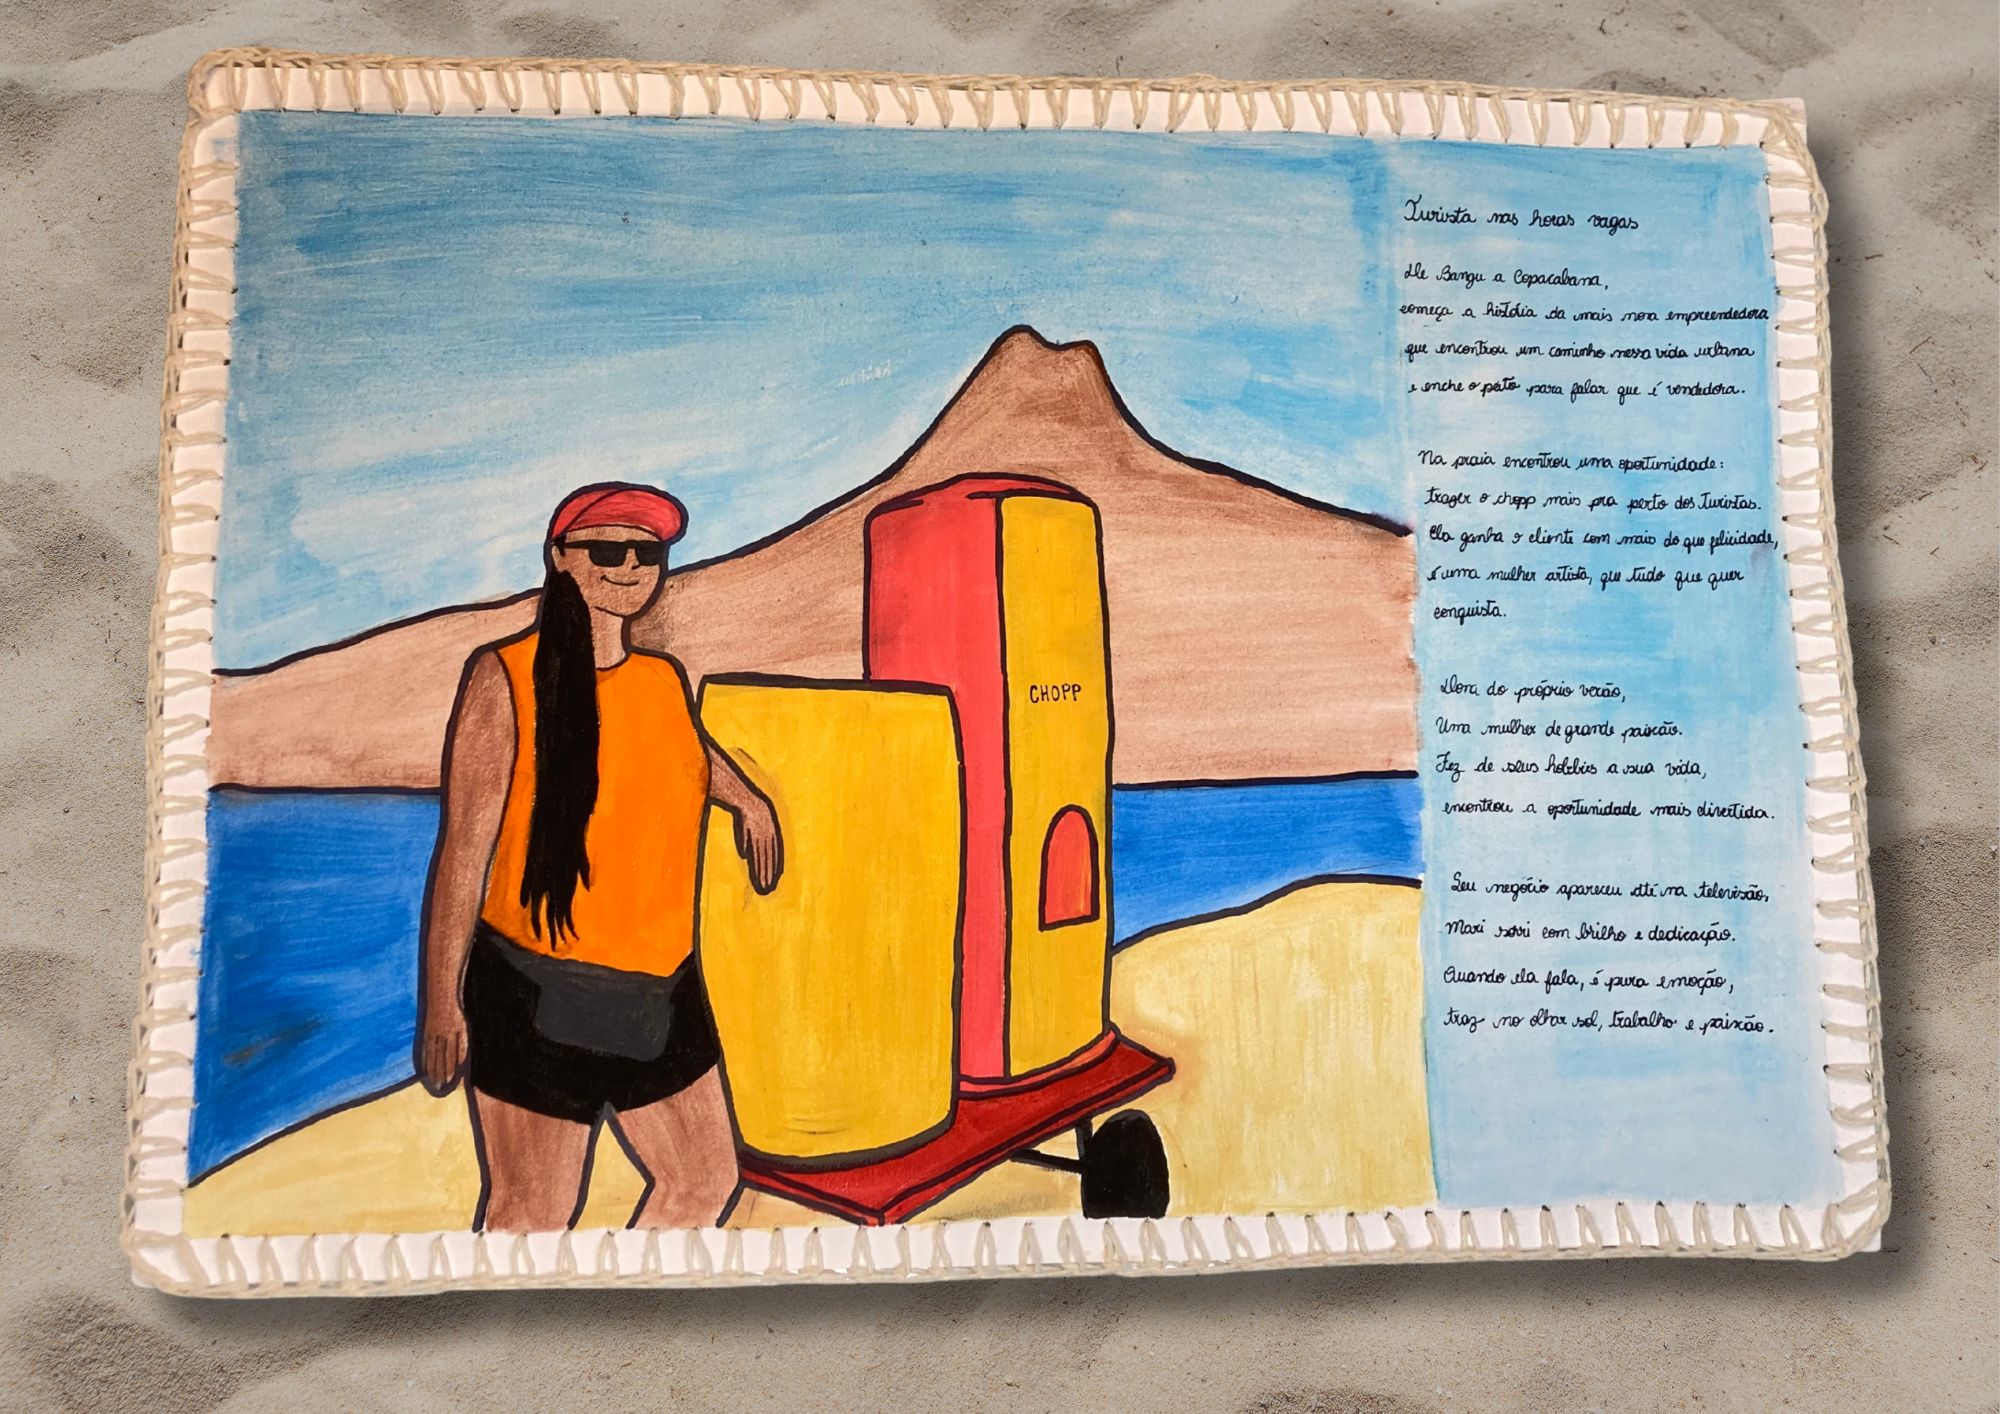 CHOPP
Turista nas horas vagas
De Bangu a Copacabana,
começa a história da mais nova empreendedora
que encontrou um caminho nessa vida urbana
e enche o peito para falar que é vendedora.
Na praia encontrou uma oportunidade:
trazer o chopp mais pra perto dos turistas.
Ela ganha o cliente com mais do que felicidade,
é uma mulher artista, que tudo que quer
conquista.
Dona do próprio verão,
Uma mulher de grande paixão.
Fez de seus hobbies a sua vida,
encontrou a oportunidade mais divertida.
Seu negócio apareceu até na televisão,
Mari sorri com brilho e dedicação.
Quando ela fala, é pura emoção,
traz no olhar sol, trabalho e paixão.